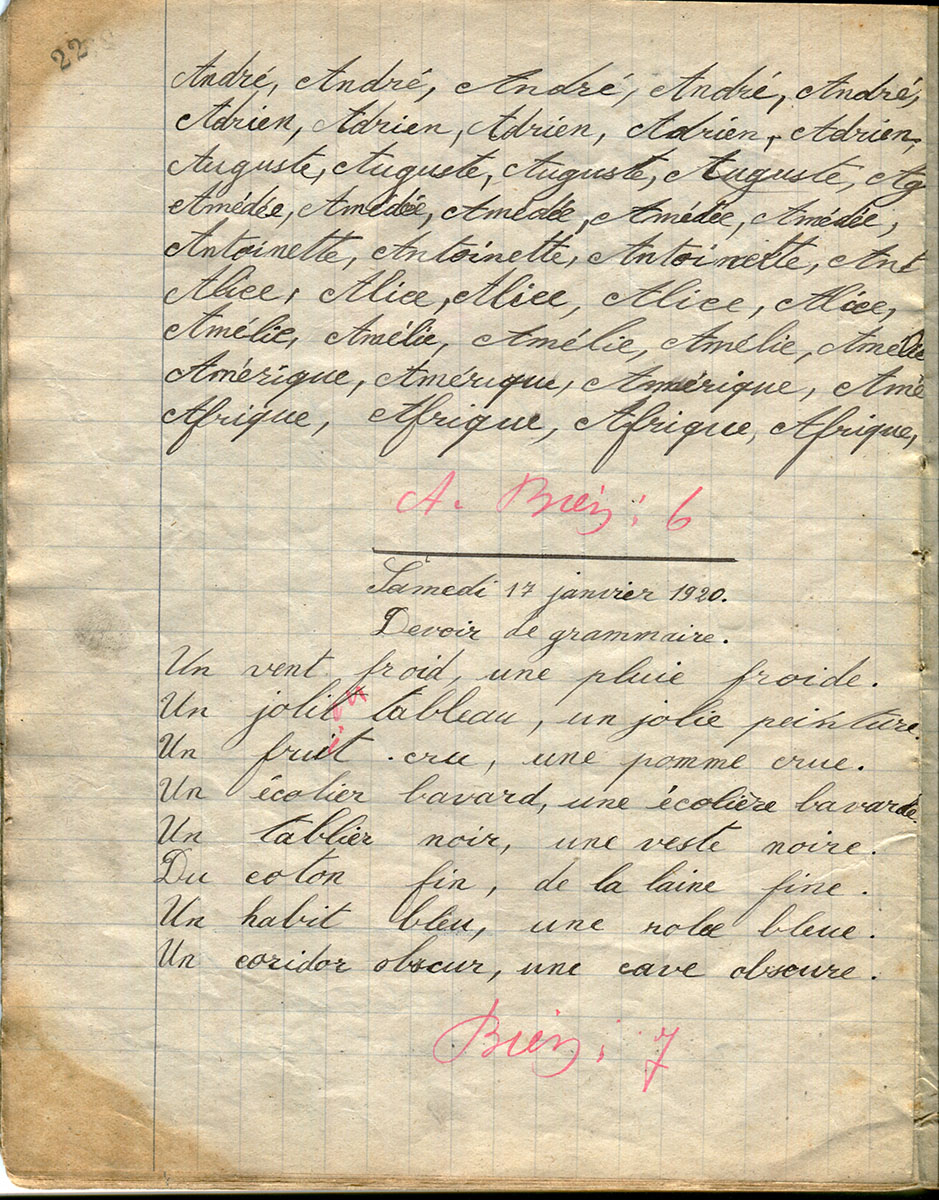 22
André, André, André, André, André,
Adrien, Adrien, Adrien, Adrien, Adrien,
Auguste, Auguste, Auguste, Auguste, Ag
Amédée, Amédée, Amédée, Amédée, Amédée,
Antoinette, Antoinette, Antoinette, Ant
Alice, Alice, Alice, Alice, Alice,
Amélie, Amélie, Amélie, Amélie, Amélie
Amérique, Amérique, Amérique, Amé
Afrique, Afrique, Afrique, Afrique,
A. Bien : 6
Samedi 17 janvier 1920.
Devoir de grammaire.
Un vent froid, une pluie froide.
Un jolit tableau, un jolie peinture.
Un fruit cru, une pomme crue.
Un écolier bavard, une écolière bavarde.
Un tablier noir, une veste noire.
Du coton fin, de la laine fine.
Un habit bleu, une robe bleue.
Un coridor obscur, une cave obscure.
Bien : 7